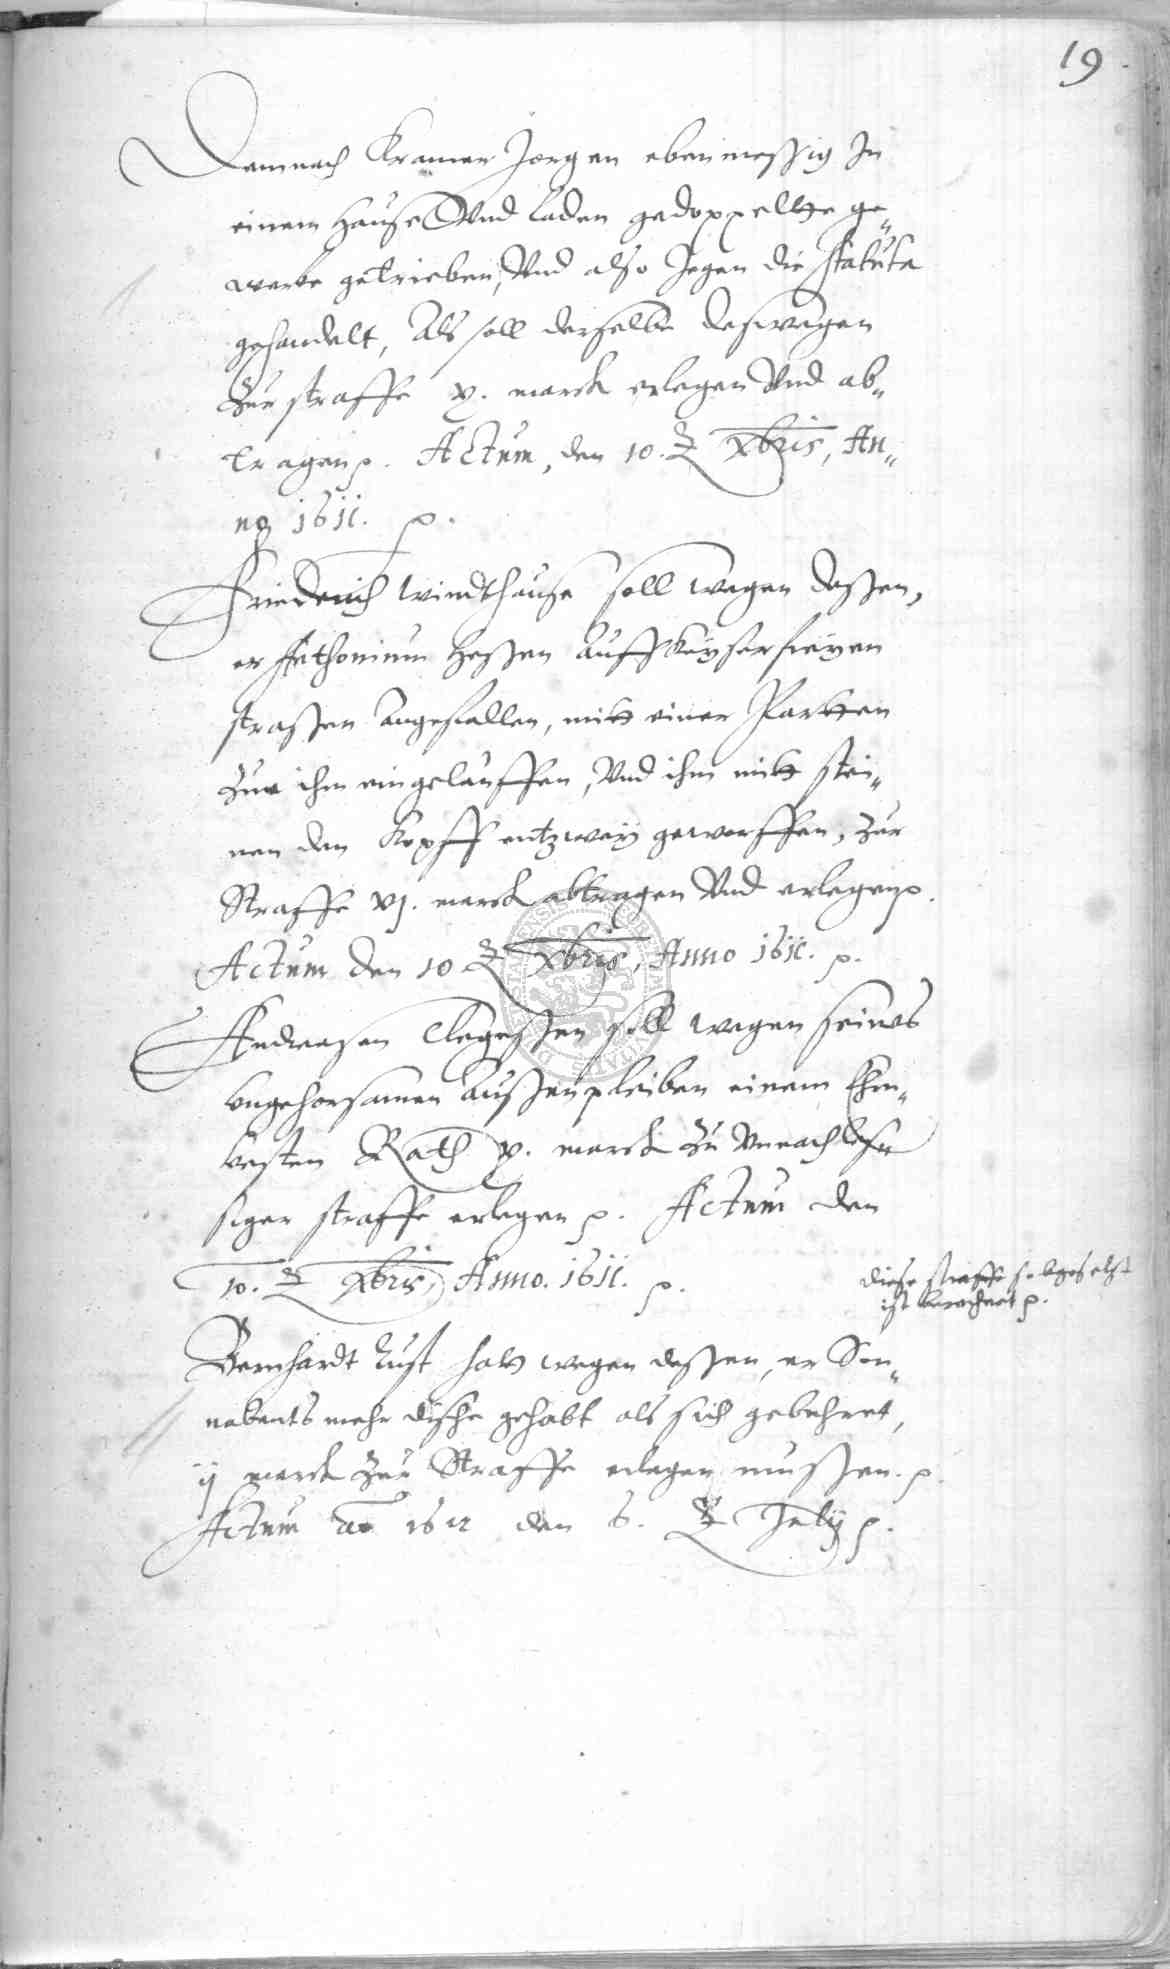 19
Demnach Kramer Jorgen ebenmessig In
einem Hause Vnd laden gedoppeltte ge„
werbe getrieben, Vnd also Jegen die statuta
gehandelt, Als soll derselbe deswegen
Zur straffe x. marck erlegen Vnd ab„
tragen p. Actum, den 10. Xbris, An„
no 1611. p.
Friederich Windthause soll wegen deßen,
er Anthonium Heßen auff Keyserfreyen
straßen angefallen, mitt einer Partten
Zur ihm eingelauffen, Vnd ihm mitt stei„
nen den Kopff entzwey geworffen, Zur
Straffe vj. marck abtragen Vnd erlegen p.
Actum den 10 Xbris, Anno 1611. p.
Andreasen soll wegen seines
Vngehorsamen außenpleiben einem Ehrn„
vesten Rath x. marck Zu Vnnachles„
siger straffe erlegen p. Actum den
10. Xbris, Anno. 1611. p.
diese straffe
ist berechnet p.
Bernhardt Lust hatt wegen deßen, er Son„
nabents mehr dische gehabt als sich gebuhret,
ij marck Zur Straffe erlegen mußen. p.
Actum ao 1612 den 6. July p.